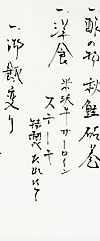 一、酢の物 秋鮭砧巻
一、洋食 米沢牛サーロイン
ステーキ
特製たれにて
一、御飯変り